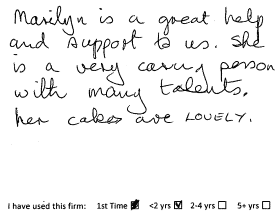 Marilyn is a great help
and support to us. She
is a very caring person
with many talents.
her cakes are LOVELY.
I have used this firm: 1st Time <2 yrs 2-4 yrs 5+ yrs